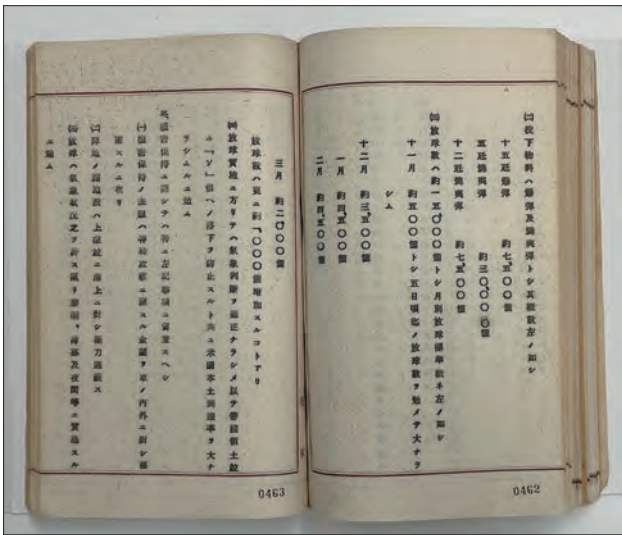 ㈡投下物料ハ爆弾及焼夷弾トシ其概数左ノ如シ
十五瓩爆弾　約七、五〇〇個
五瓩焼夷弾　約三〇、〇〇〇個
十二瓩焼夷弾　約七、五〇〇個
㈢放球数ハ約一五、〇〇〇個トシ月別放球標準概ネ左ノ如シ
十一月　約五〇〇個トシ五日頃迄ノ放球数ヲ勉メテ大ナラ
シム
十二月　約三、五〇〇個
一月　約四、五〇〇個
二月　約四、五〇〇個
0462
三月　約二、〇〇〇個
放球数ハ更ニ約一、〇〇〇個増加スルコトアリ
㈣放球実施ニ方リテハ気象判断ヲ適正ナラシメ以テ帝国領土並
ニ「ソ」領ヘノ落下ヲ防止スルト共ニ米国本土到達率ヲ大ナ
ラシムルニ勉ム
機密保持ニ関シテハ特ニ左記事項ニ留意スヘシ
㈠機密保持ノ主眼ハ特殊攻撃ニ関スル企図ヲ軍ノ内外ニ対シ秘
匿スルニ在リ
㈡陣地ノ諸施設ハ上空並ニ海上ニ対シ極力遮蔽ス
㈢放球ハ気象状況之ヲ許ス限リ黎明、薄暮及夜間等ニ実施スル
ニ勉ム
0463